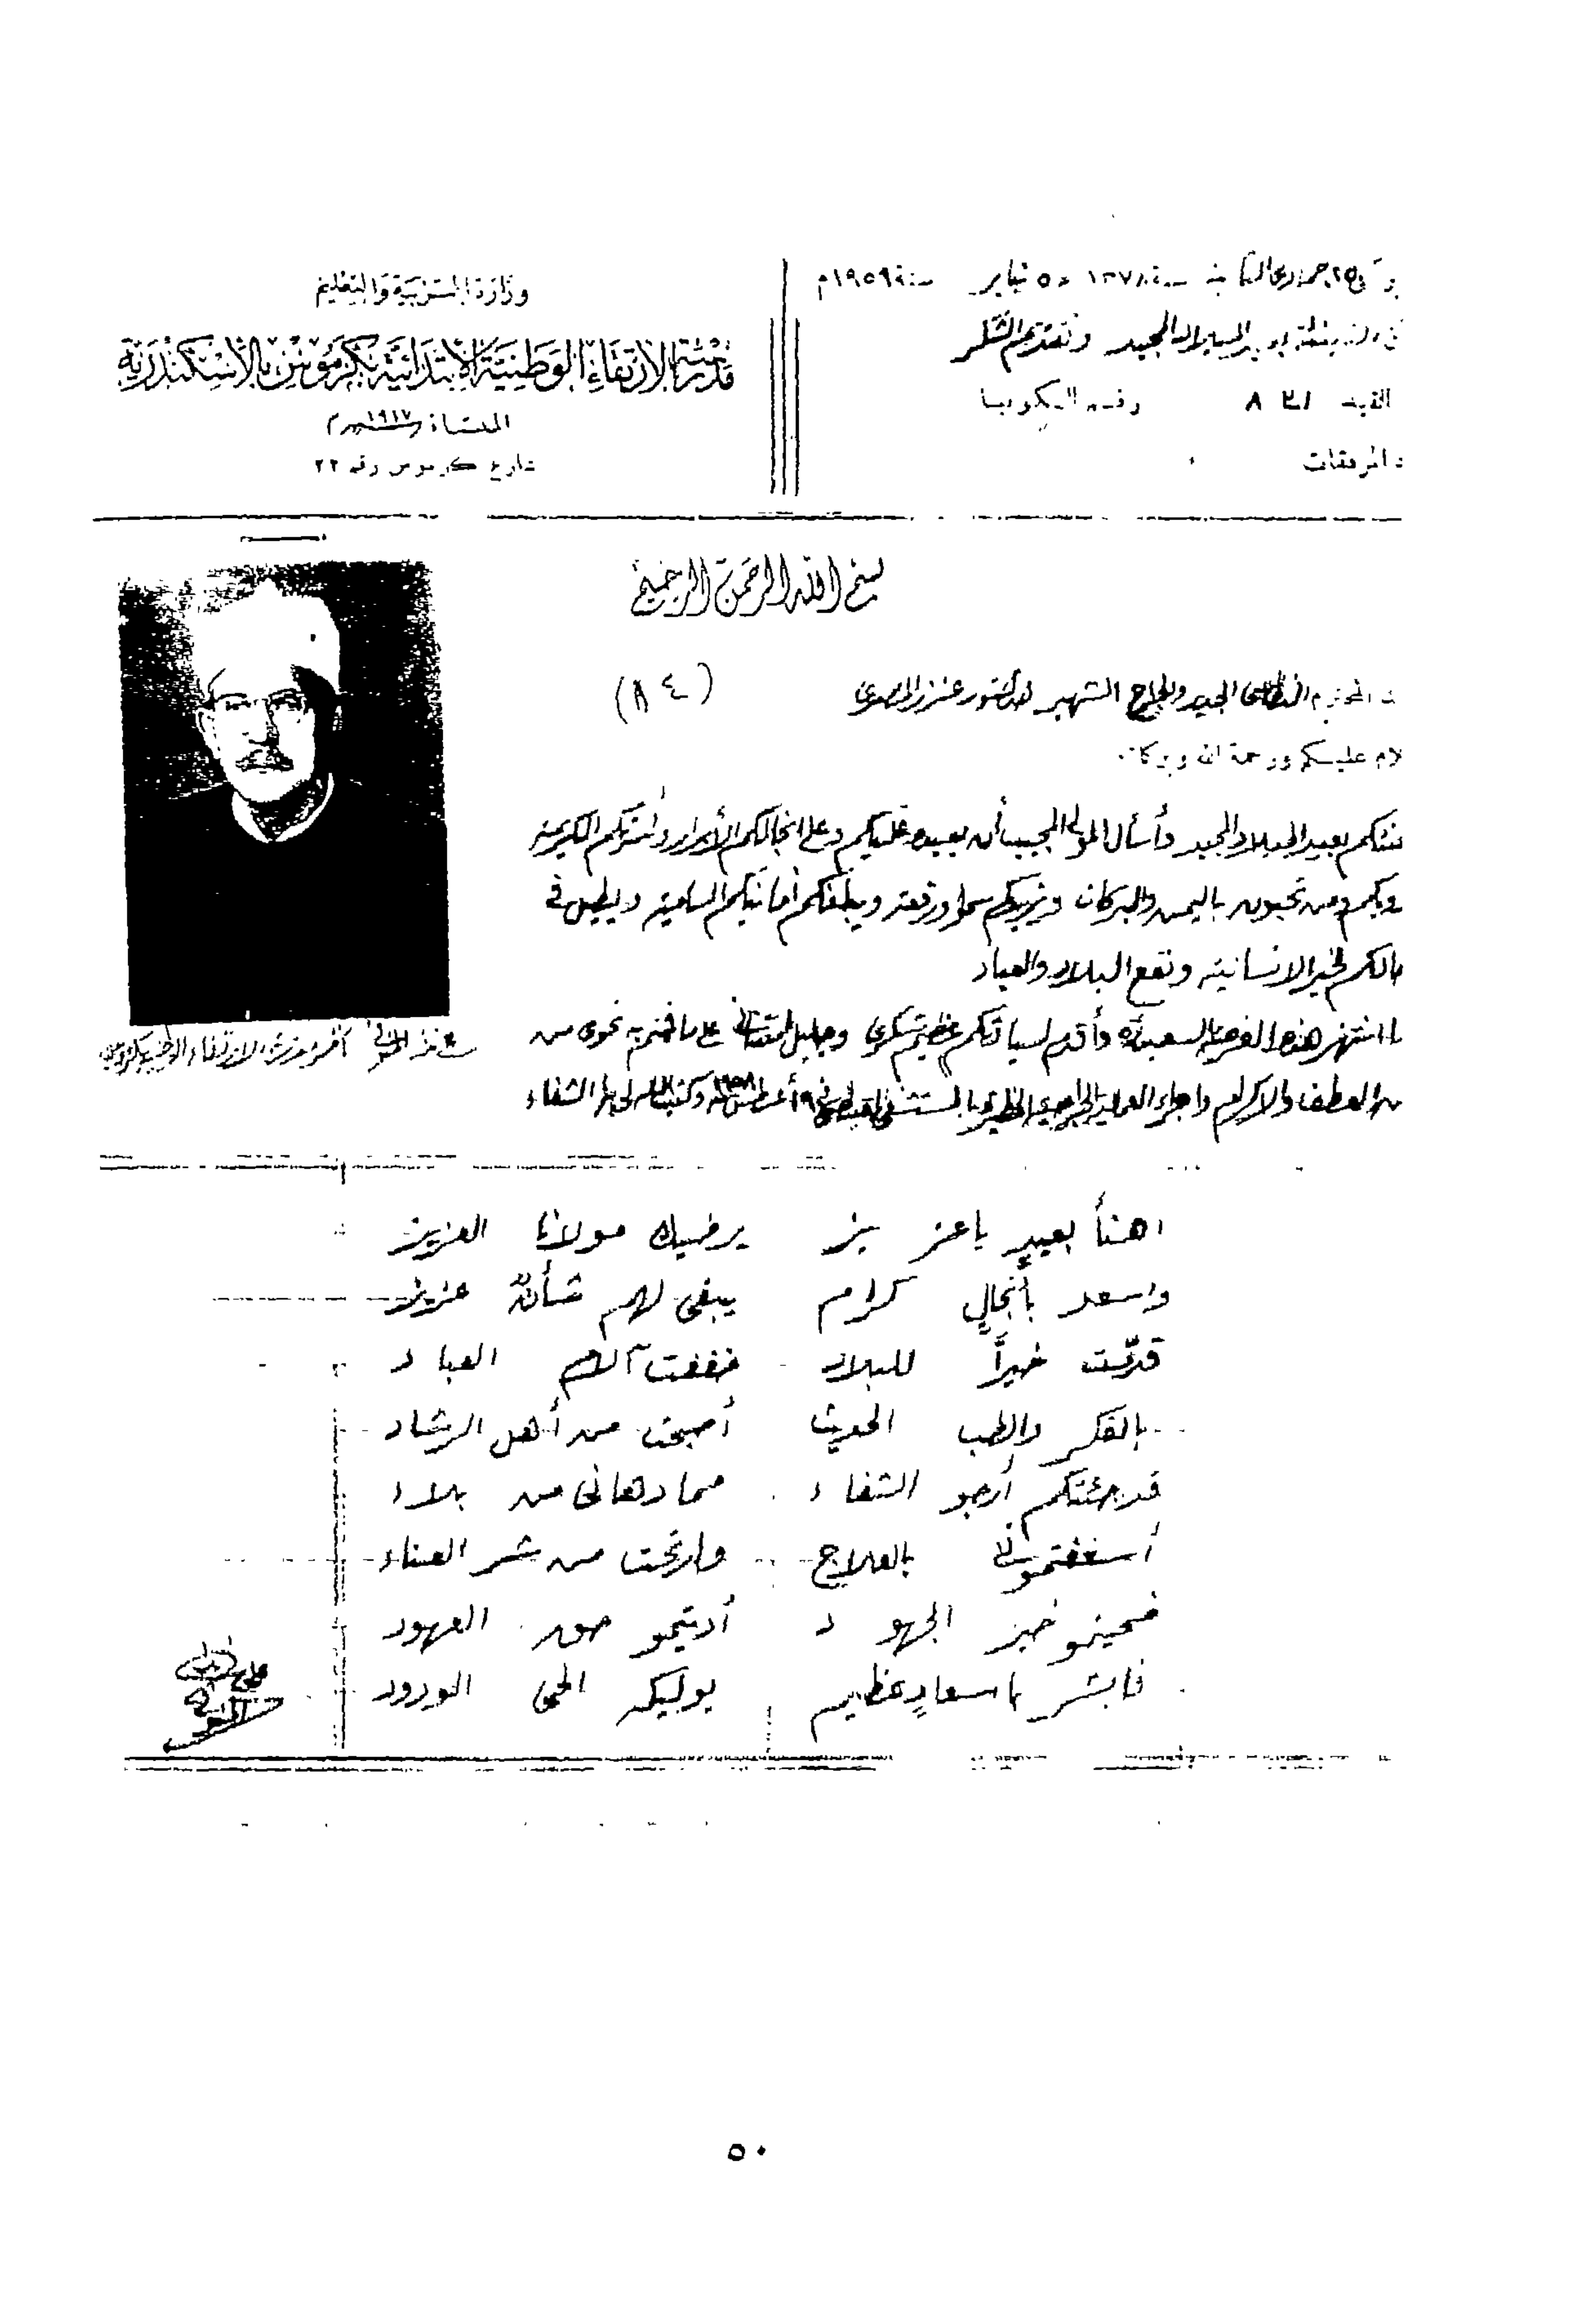 وزارة التربية والتعليم
مدرسة الارتقاء الوطنية الابتدائية بكرموس بالاسكندرية
المنشأة ١٩١٧م
شارع كرموس رقم ٢٢
٢٥ جمادى الثانية سنة ١٣٧٨ ٥ يناير سنة ١٩٥٩م
الميلاد المجيد وتقديم الشكر
القيد ٨
المرفقات
بسم الله الرحمن الرحيم
(٨٤)
النطاسى الجديد والجراح الشهير الدكتور عزيز المصرى
لام عليكم ورحمة الله وبركاته
بعيد الميلاد المجيد وأسأل المولى المجيب أن يعيده عليكم وعلى انجالكم الأبرار وأسرتكم الكريمة
ومن تحبون باليمن والبركات ويزيدكم سموا ورفعة ويبلغكم أمانيكم السامية ويطيل فى
لخير الانسانية ونفع البلاد والعباد
انتهز هذه الفرصة السعيدة وأقدم لسيادتكم عظيم شكرى وجليل على ما قمتم به نحوى من
العطف والاكرام واجراء العملية الجراحية الخطيرة بالمستشفى القبطى فى ١٩ أغسطس ١٩٥٨ وكتب الله لى الشفاء
اهنأ بعيدٍ يا عزيز يرضيك مولانا العزيز
واسعد بأنجالٍ كرام يبقى لهم شأن عزيز
قدّمت خيراً للبلاد خففت آلام العباد
بالفكر والطب الحديث أصبحت من أهل الرشاد
قد جئتكم أرجو الشفاء مما دهانى من بلاء
أسعفتمونى بالعلاج وارتحت من شر العناء
فمحيتمو خير الجهود أديتمو حق العهود
فابشر باسعادٍ عظيم يوليكه الحى الودود
٥٠